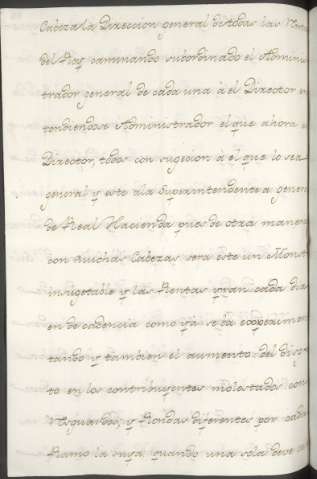 Cabeza la Direccion general de todas las
del Rey caminando subordinado el Adminis
trador general de cada una á el Director en
tendiendose Administrador el que ahora es
Director, todos con sugecion á el que lo sea
general y este ala Superintendente a genera
de Real Hacienda pues de otra manera
con muchas Cabezas sera este un Monst
insugetable y las Rentas yran cada dia
en decadencia como ya se ba experimen
tando y tambien el aumento del disgus
to en los contribuyentes molestados con
Resguardos y Rondas diferentes por cada
Ramo la suya quando una sola deve